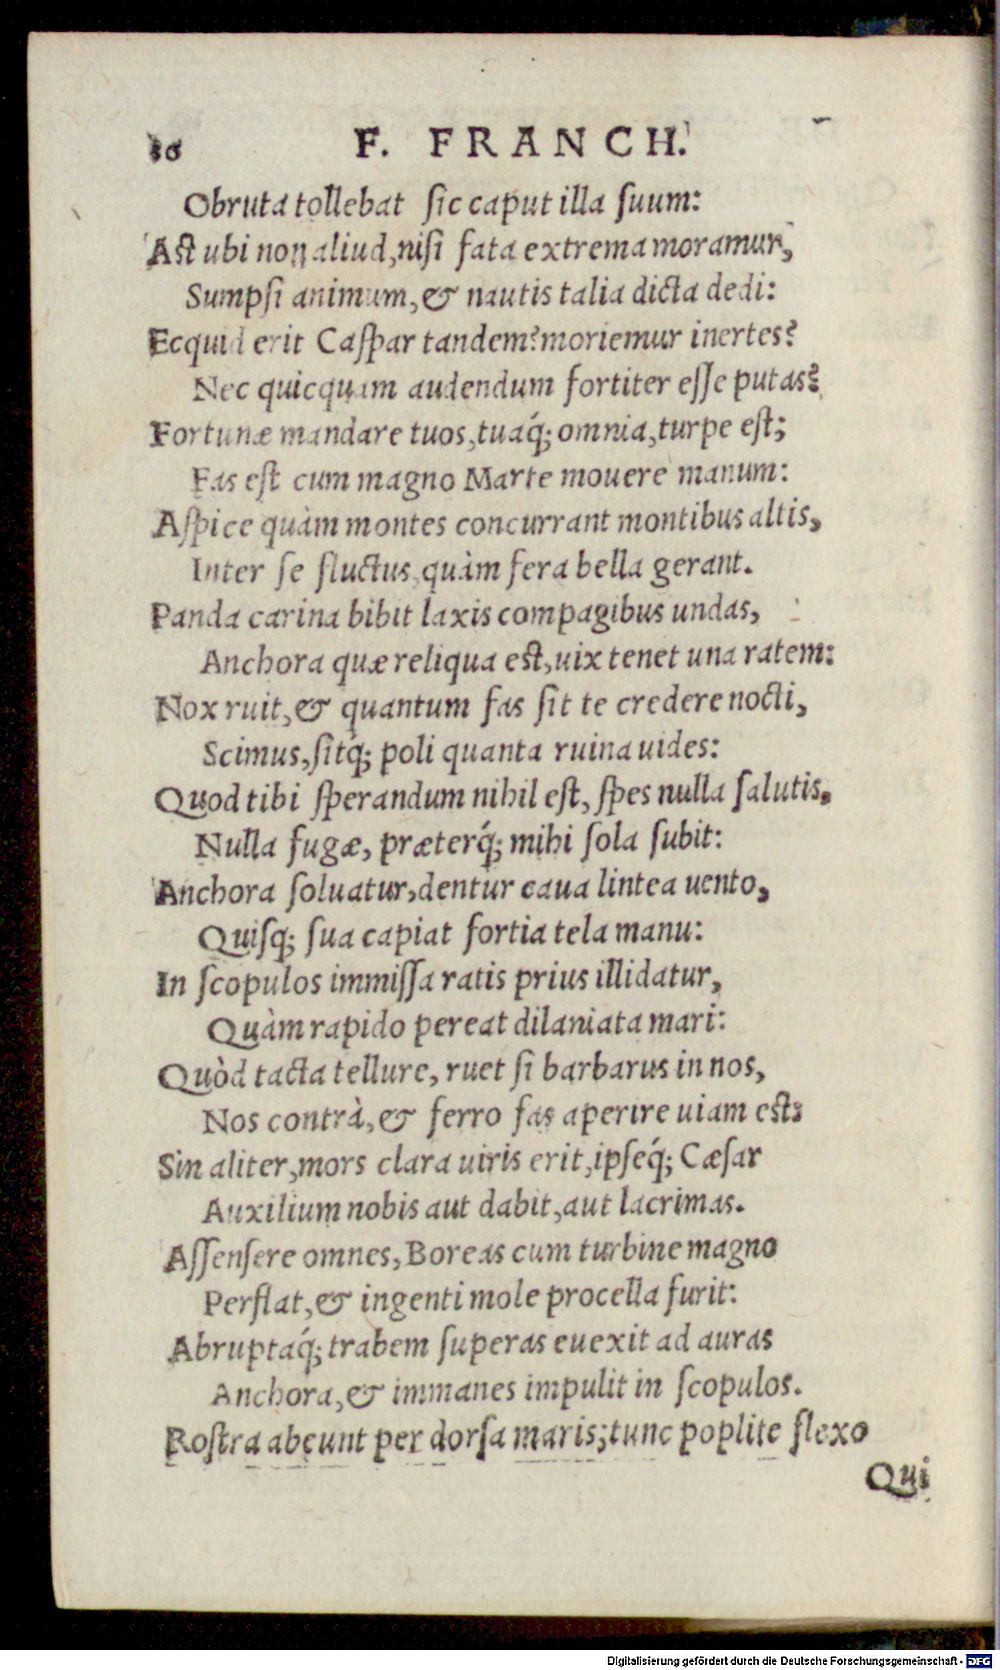 F. FRANCH.
Obruta tollebat sic caput illa suum:
Ast ubi non aliud, nisi fata extrema moramur,
Sumpsi animum, & nautis talia dicta dedi:
Ecquid erit Caspar tandem? moriemur inertes?
Nec quicquam audendum fortiter esse putas?
Fortunæ mandare tuos, tuaq́; omnia, turpe est;
Fas est cum magno Marte mouere manum:
Aspice quàm montes concurrant montibus altis,
Inter se fluctus, quàm fera bella gerant.
Panda carina bibit laxis compagibus undas,
Anchora quæ reliqua est, uix tenet una ratem:
Nox ruit, & quantum fas sit te credere nocti,
Scimus, sitq́; poli quanta ruina uides:
Quod tibi sperandum nihil est, spes nulla salutis,
Nulla fugæ, præterq́; mihi sola subit:
Anchora soluatur, dentur caua lintea uento,
Quisq; sua capiat fortia tela manu:
In scopulos immissa ratis prius illidatur,
Quàm rapido pereat dilaniata mari:
Quòd tacta tellure, ruet si barbarus in nos,
Nos contrà, & ferro fas aperire uiam est:
Sin aliter, mors clara uiris erit, ipseq́; Cæsar
Auxilium nobis aut dabit, aut lacrimas.
Assensere omnes, Boreas cum turbine magno
Perflat, & ingenti mole procella furit:
Abruptaq́; trabem superas euexit ad auras
Anchora, & immanes impulit in scopulos.
Rostra abeunt per dorsa maris; tunc poplite flexo
Qui
Digitalisierung gefördert durch die Deutsche Forschungsgemeinschaft - DFG